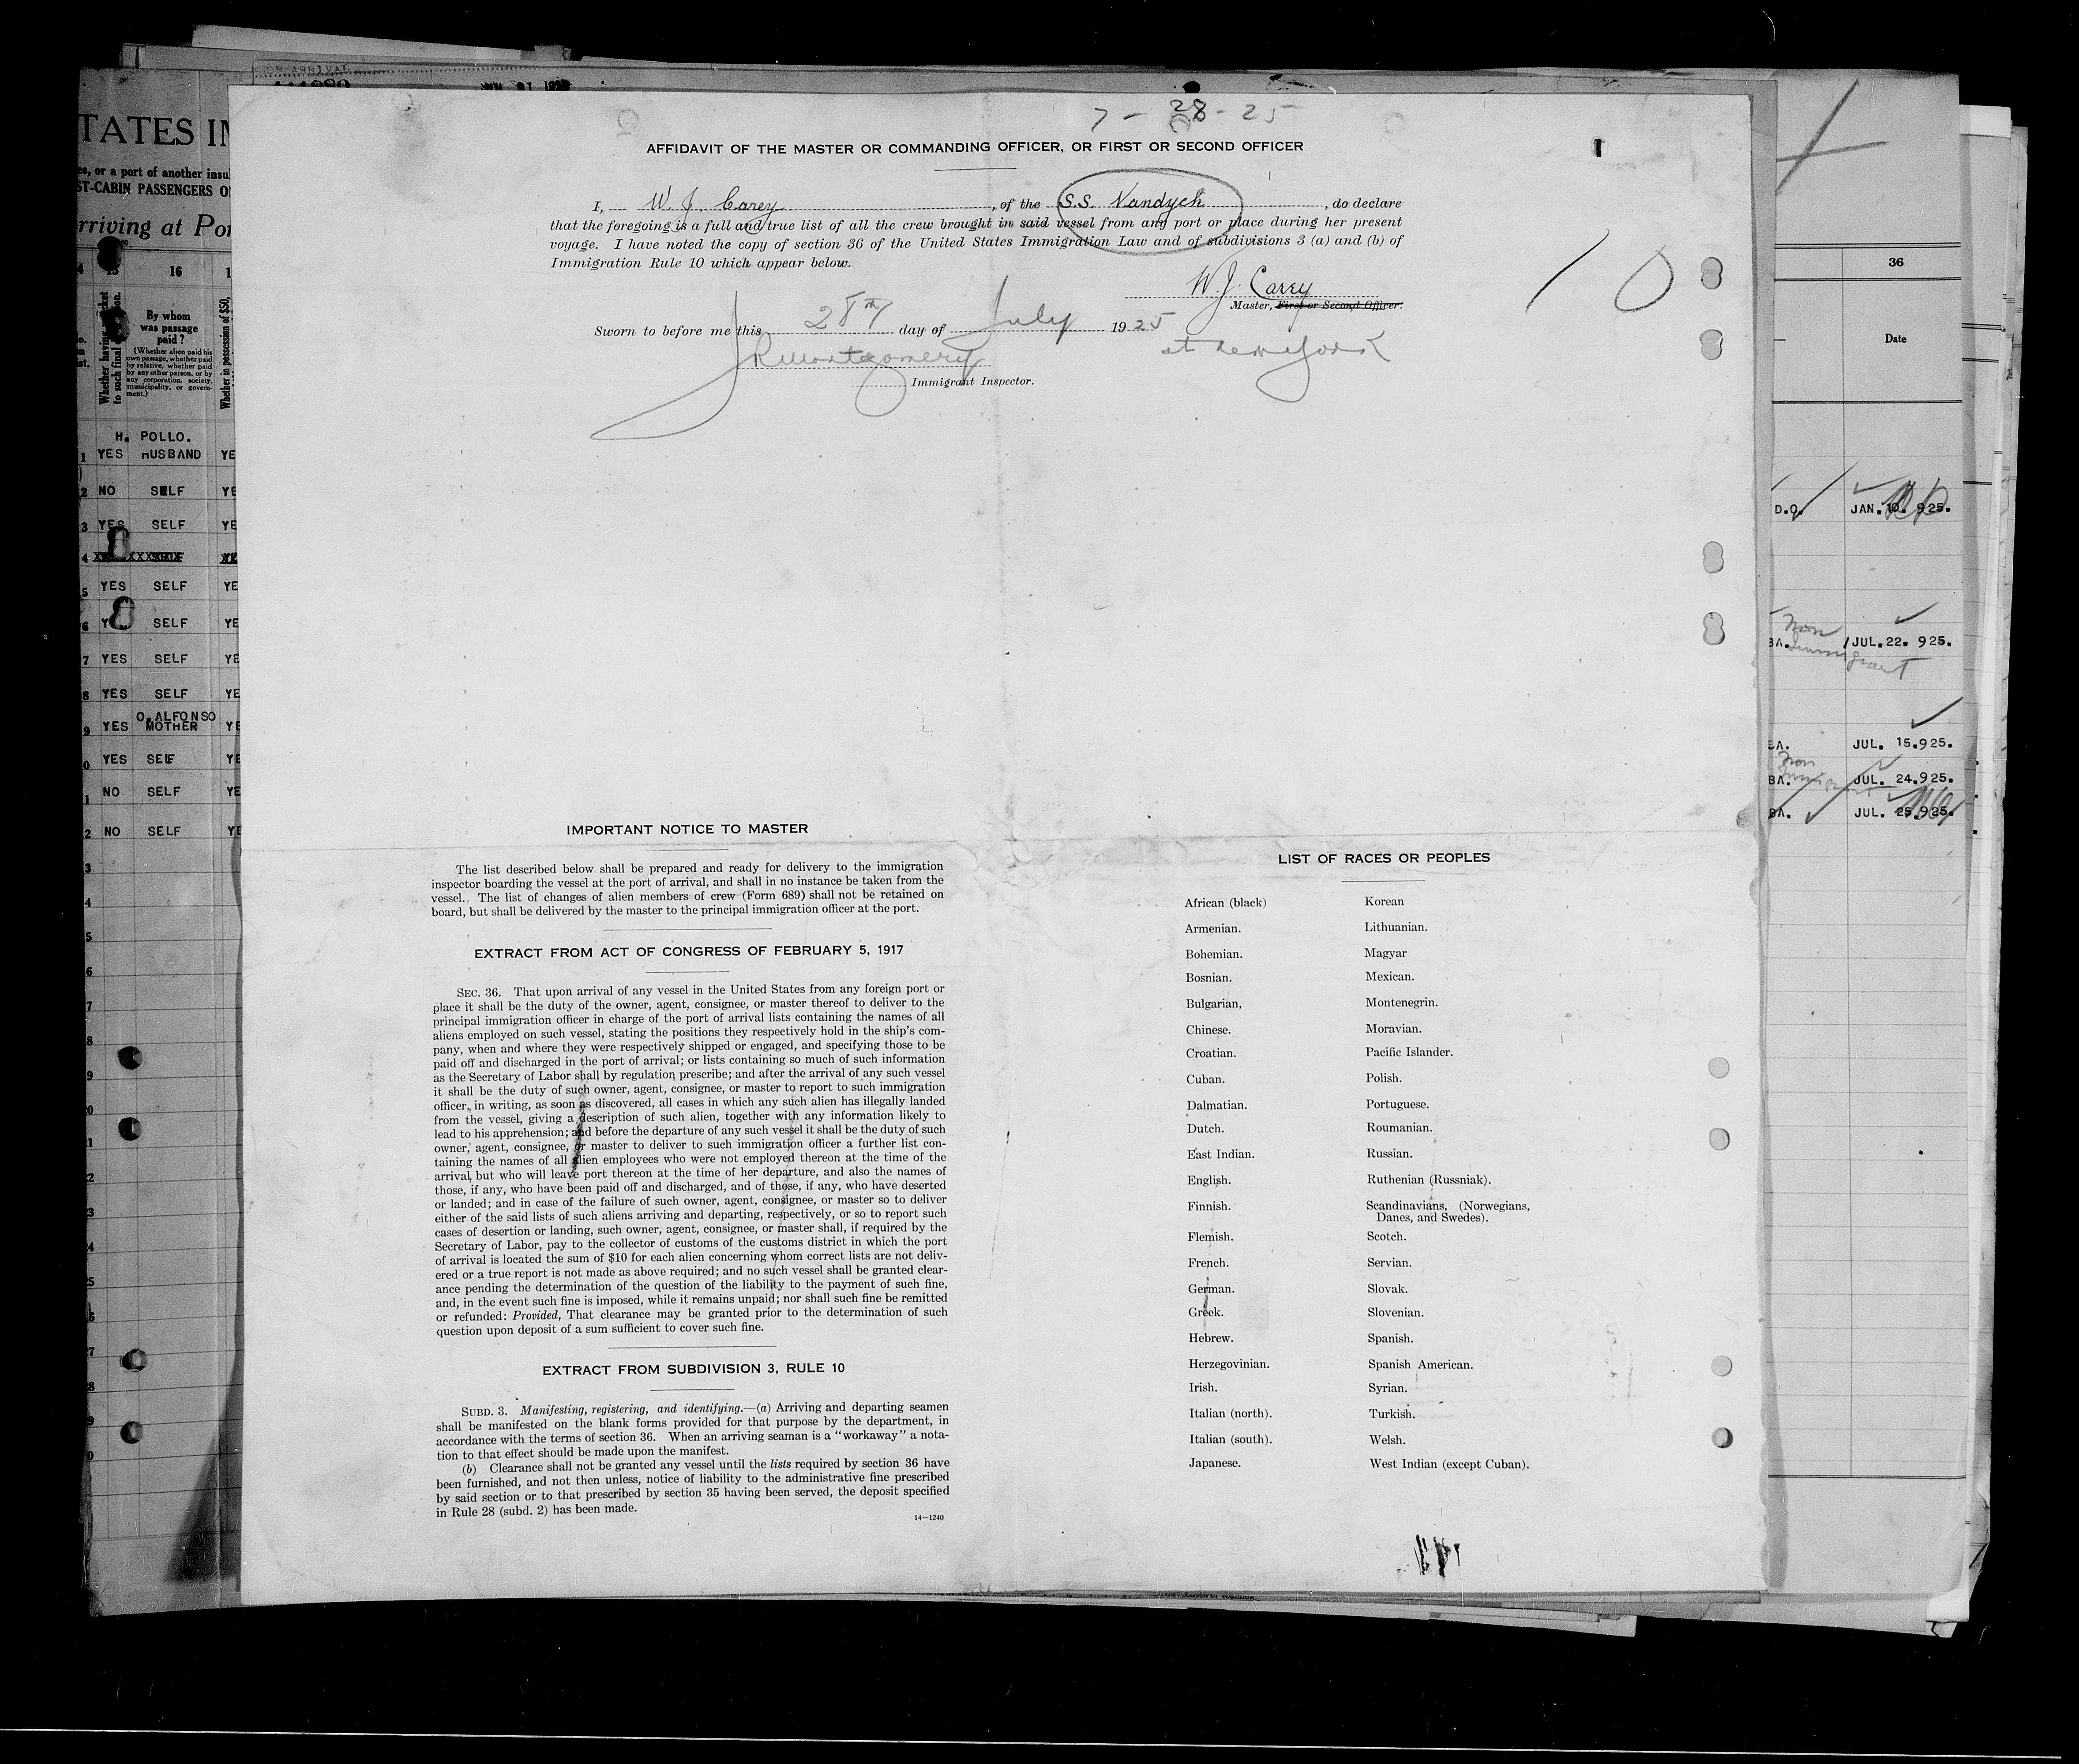 7 - 28 - 25
AFFIDAVIT OF THE MASTER OR COMMANDING OFFICER, OR FIRST OR SECOND OFFICER
I, W. J. Carey, of the S.S. Vandyck, do declare
that the foregoing is a full and true list of all the crew brought in said vessel from any port or place during her present
voyage. I have noted the copy of section 36 of the United States Immigration Law and of subdivisions 3 (a) and (b) of
Immigration Rule 10 which appear below.
W. J. Carey
Master, First or Second Officer.
10
Sworn to before me this 28th day of July 1925
at New York
JRMontgomery
Immigrant Inspector.
IMPORTANT NOTICE TO MASTER
The list described below shall be prepared and ready for delivery to the immigration
inspector boarding the vessel at the port of arrival, and shall in no instance be taken from the
vessel. The list of changes of alien members of crew (Form 689) shall not be retained on
board, but shall be delivered by the master to the principal immigration officer at the port.
EXTRACT FROM ACT OF CONGRESS OF FEBRUARY 5, 1917
SEC. 36. That upon arrival of any vessel in the United States from any foreign port or
place it shall be the duty of the owner, agent, consignee, or master thereof to deliver to the
principal immigration officer in charge of the port of arrival lists containing the names of all
aliens employed on such vessel, stating the positions they respectively hold in the ship's com-
pany, when and where they were respectively shipped or engaged, and specifying those to be
paid off and discharged in the port of arrival; or lists containing so much of such information
as the Secretary of Labor shall by regulation prescribe; and after the arrival of any such vessel
it shall be the duty of such owner, agent, consignee, or master to report to such immigration
officer, in writing, as soon as discovered, all cases in which any such alien has illegally landed
from the vessel, giving a description of such alien, together with any information likely to
lead to his apprehension; and before the departure of any such vessel it shall be the duty of such
owner, agent, consignee, or master to deliver to such immigration officer a further list con-
taining the names of all alien employees who were not employed thereon at the time of the
arrival, but who will leave port thereon at the time of her departure, and also the names of
those, if any, who have been paid off and discharged, and of those, if any, who have deserted
or landed; and in case of the failure of such owner, agent, consignee, or master so to deliver
either of the said lists of such aliens arriving and departing, respectively, or so to report such
cases of desertion or landing, such owner, agent, consignee, or master shall, if required by the
Secretary of Labor, pay to the collector of customs of the customs district in which the port
of arrival is located the sum of $10 for each alien concerning whom correct lists are not deliv-
ered or a true report is not made as above required; and no such vessel shall be granted clear-
ance pending the determination of the question of the liability to the payment of such fine,
and, in the event such fine is imposed, while it remains unpaid; nor shall such fine be remitted
or refunded: Provided, That clearance may be granted prior to the determination of such
question upon deposit of a sum sufficient to cover such fine.
EXTRACT FROM SUBDIVISION 3, RULE 10
SUBD. 3. Manifesting, registering, and identifying.—(a) Arriving and departing seamen
shall be manifested on the blank forms provided for that purpose by the department, in
accordance with the terms of section 36. When an arriving seaman is a "workaway" a nota-
tion to that effect should be made upon the manifest.
(b) Clearance shall not be granted any vessel until the lists required by section 36 have
been furnished, and not then unless, notice of liability to the administrative fine prescribed
by said section or to that prescribed by section 35 having been served, the deposit specified
in Rule 28 (subd. 2) has been made.
14—1240
LIST OF RACES OR PEOPLES
African (black)
Armenian.
Bohemian.
Bosnian.
Bulgarian,
Chinese.
Croatian.
Cuban.
Dalmatian.
Dutch.
East Indian.
English.
Finnish.
Flemish.
French.
German.
Greek.
Hebrew.
Herzegovinian.
Irish.
Italian (north).
Italian (south).
Japanese.
Korean
Lithuanian.
Magyar
Mexican.
Montenegrin.
Moravian.
Pacific Islander.
Polish.
Portuguese.
Roumanian.
Russian.
Ruthenian (Russniak).
Scandinavians, (Norwegians,
Danes, and Swedes).
Scotch.
Servian.
Slovak.
Slovenian.
Spanish.
Spanish American.
Syrian.
Turkish.
Welsh.
West Indian (except Cuban).
TATES IN
es, or a port of another insu
ST-CABIN PASSENGERS O
rriving at Por
16
By whom
was passage
paid?
(Whether alien paid his
own passage, whether paid
by relative, whether paid
by any other person, or by
any corporation, society,
municipality, or govern-
ment.)
H. POLLO.
1 YES HUSBAND YE
2 NO SELF YE
3 YES SELF YE
5 YES SELF YE
6 SELF YE
7 YES SELF YE
8 YES SELF YE
O. ALFONSO
9 YES MOTHER YE
0 YES SELF YE
1 NO SELF YE
2 NO SELF YE
3
4
5
6
7
8
9
20
21
2
23
24
25
6
7
8
9
0
36
Date
D.O. JAN. 10. 925.
BA. Non Immigrant JUL. 22. 925.
BA. JUL. 15. 925.
BA. Non Immigrant JUL. 24. 925.
BA. JUL. 25. 925.